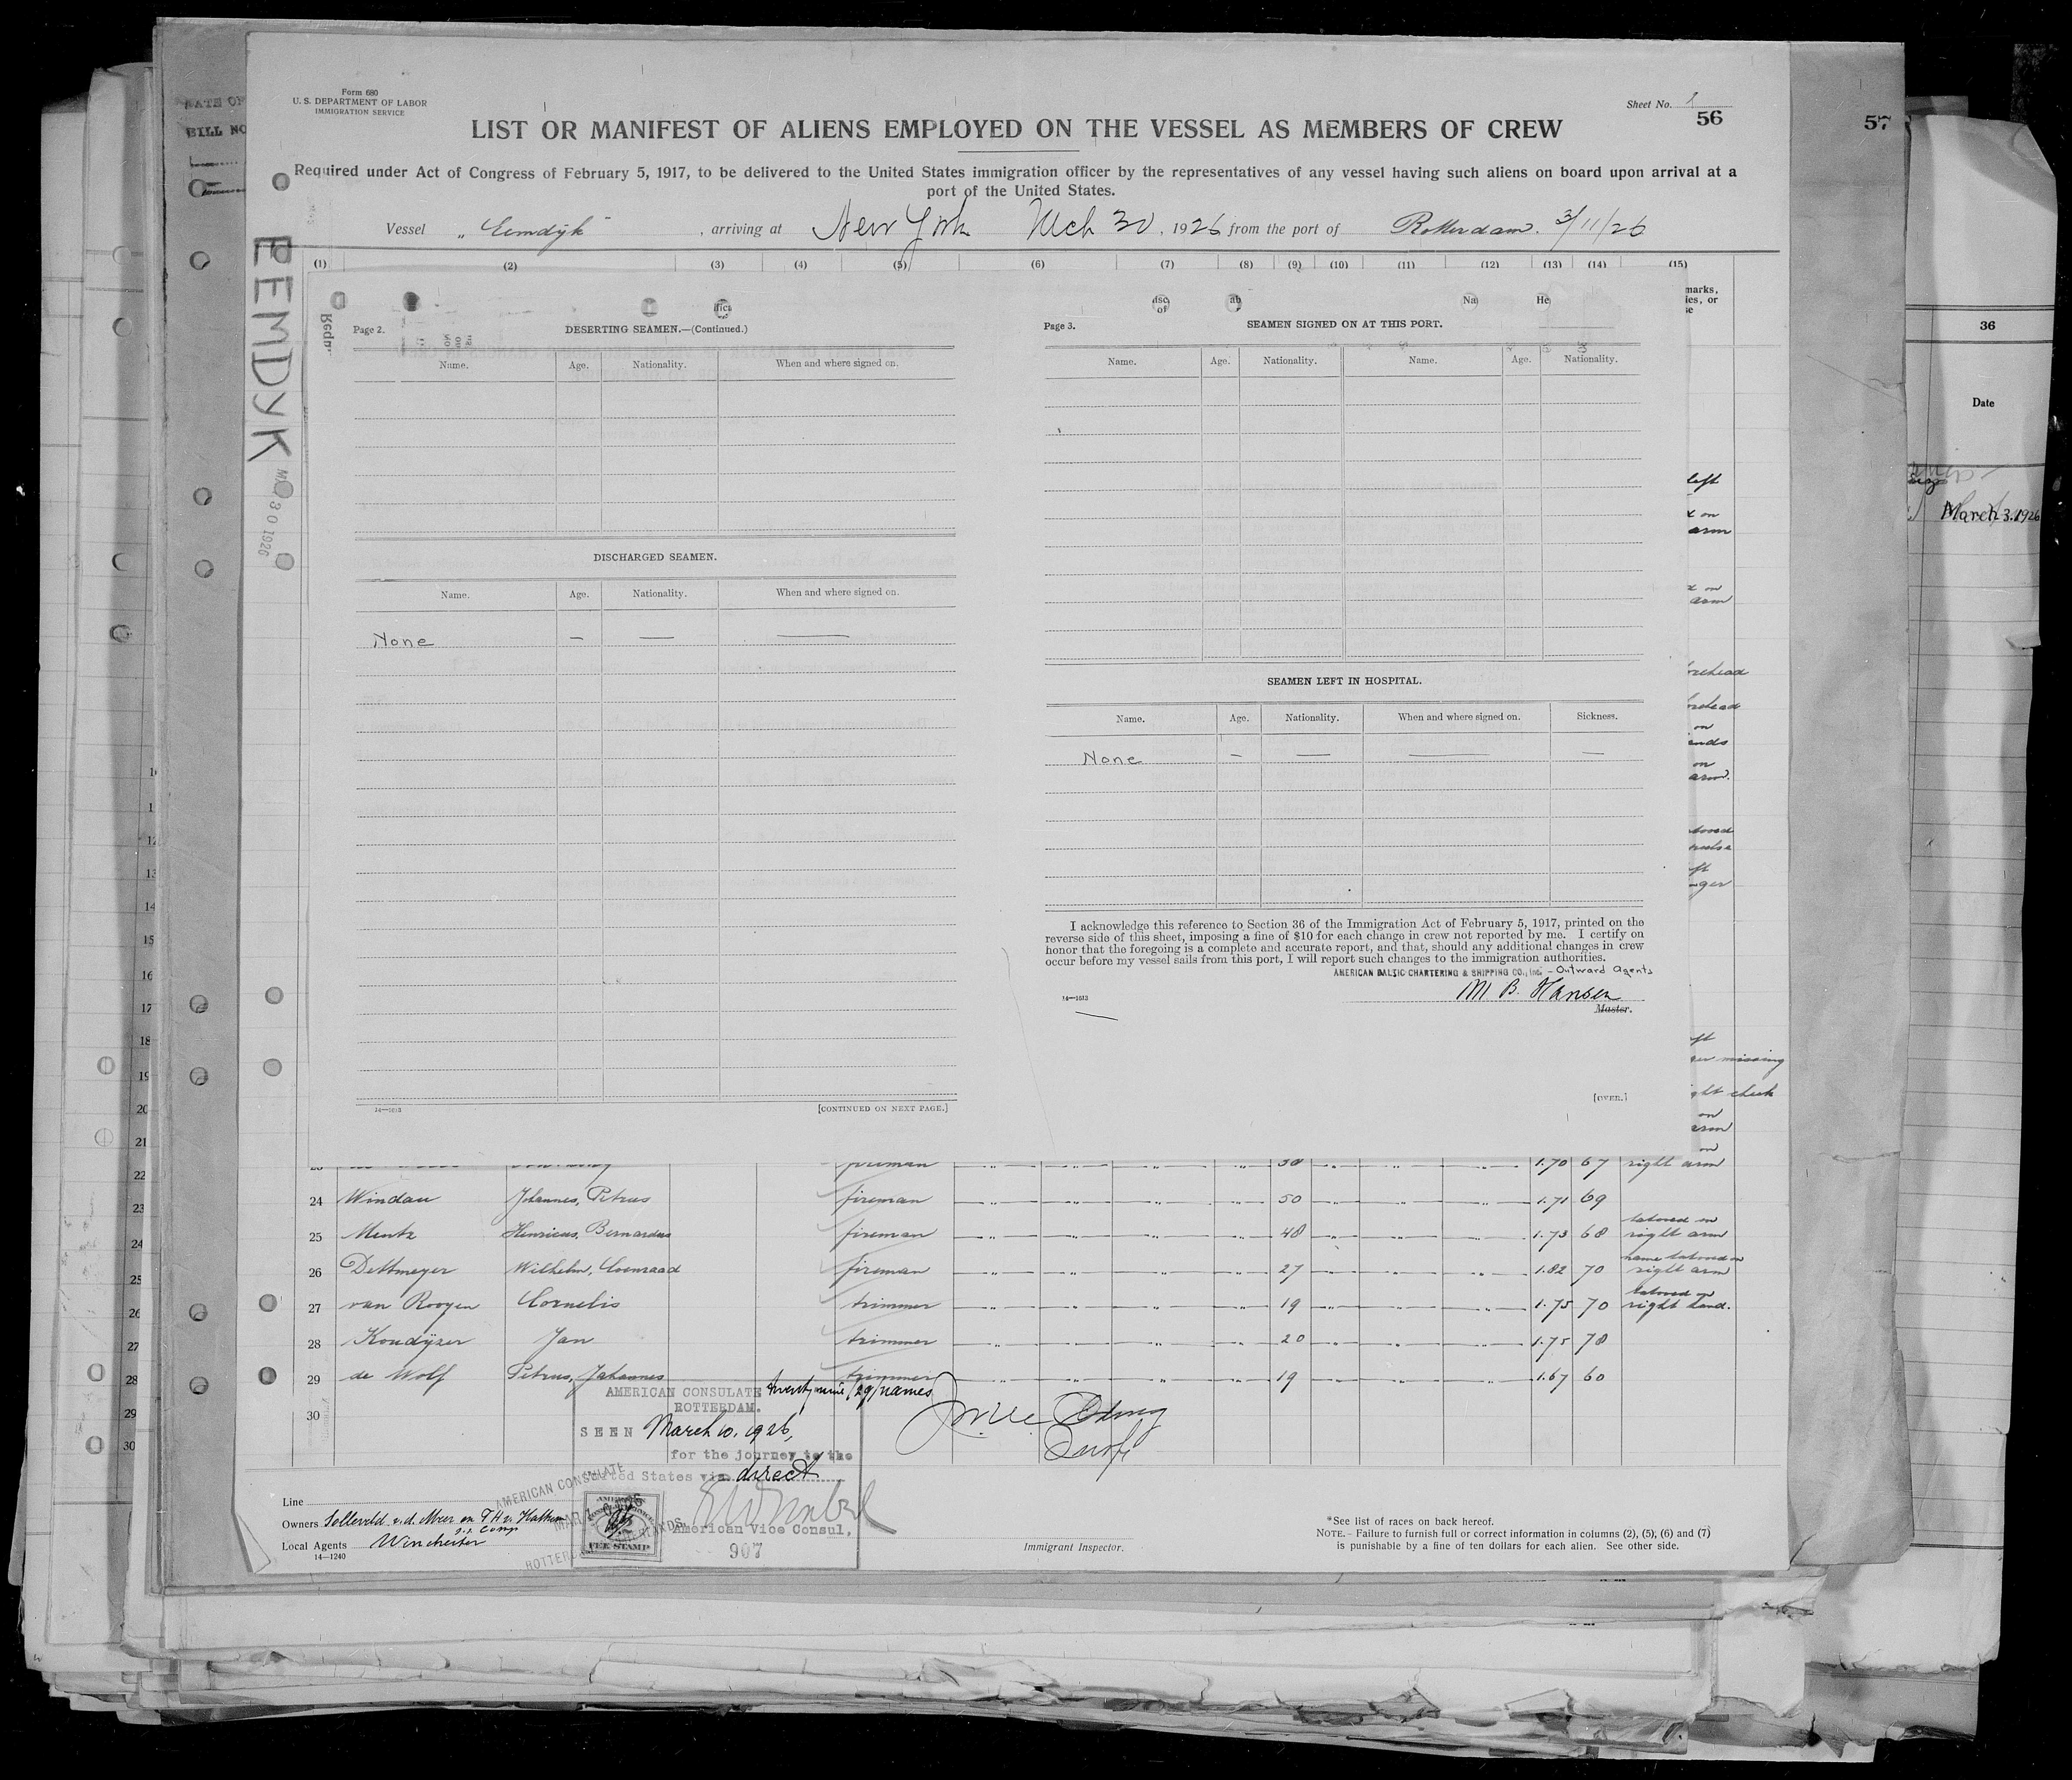 Form 680
U. S. DEPARTMENT OF LABOR
IMMIGRATION SERVICE
Sheet No. 1
56
57
LIST OR MANIFEST OF ALIENS EMPLOYED ON THE VESSEL AS MEMBERS OF CREW
Required under Act of Congress of February 5, 1917, to be delivered to the United States immigration officer by the representatives of any vessel having such aliens on board upon arrival at a
port of the United States.
Vessel „ Eemdijk " , arriving at New York Mch 30 , 1926 from the port of Rotterdam. 3/11/26
(1) (2) (3) (4) (5) (6) (7) (8) (9) (10) (11) (12) (13) (14) (15)
EEMDYK
Page 2. DESERTING SEAMEN.—(Continued.)
Name. Age. Nationality. When and where signed on.
DISCHARGED SEAMEN.
Name. Age. Nationality. When and where signed on.
None — — —
14—1613 [CONTINUED ON NEXT PAGE.]
Page 3. SEAMEN SIGNED ON AT THIS PORT.
Name. Age. Nationality. Name. Age. Nationality.
SEAMEN LEFT IN HOSPITAL.
Name. Age. Nationality. When and where signed on. Sickness.
None — — — —
I acknowledge this reference to Section 36 of the Immigration Act of February 5, 1917, printed on the
reverse side of this sheet, imposing a fine of $10 for each change in crew not reported by me. I certify on
honor that the foregoing is a complete and accurate report, and that, should any additional changes in crew
occur before my vessel sails from this port, I will report such changes to the immigration authorities.
AMERICAN BALTIC CHARTERING & SHIPPING CO., Inc. - Outward Agents
M. B. Hansen
Master.
14—1613
[OVER.]
36
Date
March 3. 1926
fireman 38 1.70 67 right arm
24 Windau Johannes, Petrus fireman 50 1.71 69
25 Mentz Henricus, Bernardus fireman 48 1.73 68 tatooed on right arm
26 Dettmeyer Wilhelm, Coenraad fireman 27 1.82 70 name tatooed on right arm
27 van Rooyen Cornelis trimmer 19 1.75 70 tatooed on right hand.
28 Koudijzer Jan trimmer 20 1.75 78
29 de Wolf Petrus, Johannes trimmer 19 1.67 60
30
AMERICAN CONSULATE twenty nine /29/ names
ROTTERDAM.
SEEN March 10. 1926,
for the journey to the
United States via direct
American Vice Consul,
907
AMERICAN
FEE STAMP
AMERICAN CONSULATE
Line
Owners Solleveld v.d. Meer en TH v. Hattum
Local Agents Winchester
14—1240
Immigrant Inspector.
*See list of races on back hereof.
NOTE.- Failure to furnish full or correct information in columns (2), (5), (6) and (7)
is punishable by a fine of ten dollars for each alien. See other side.